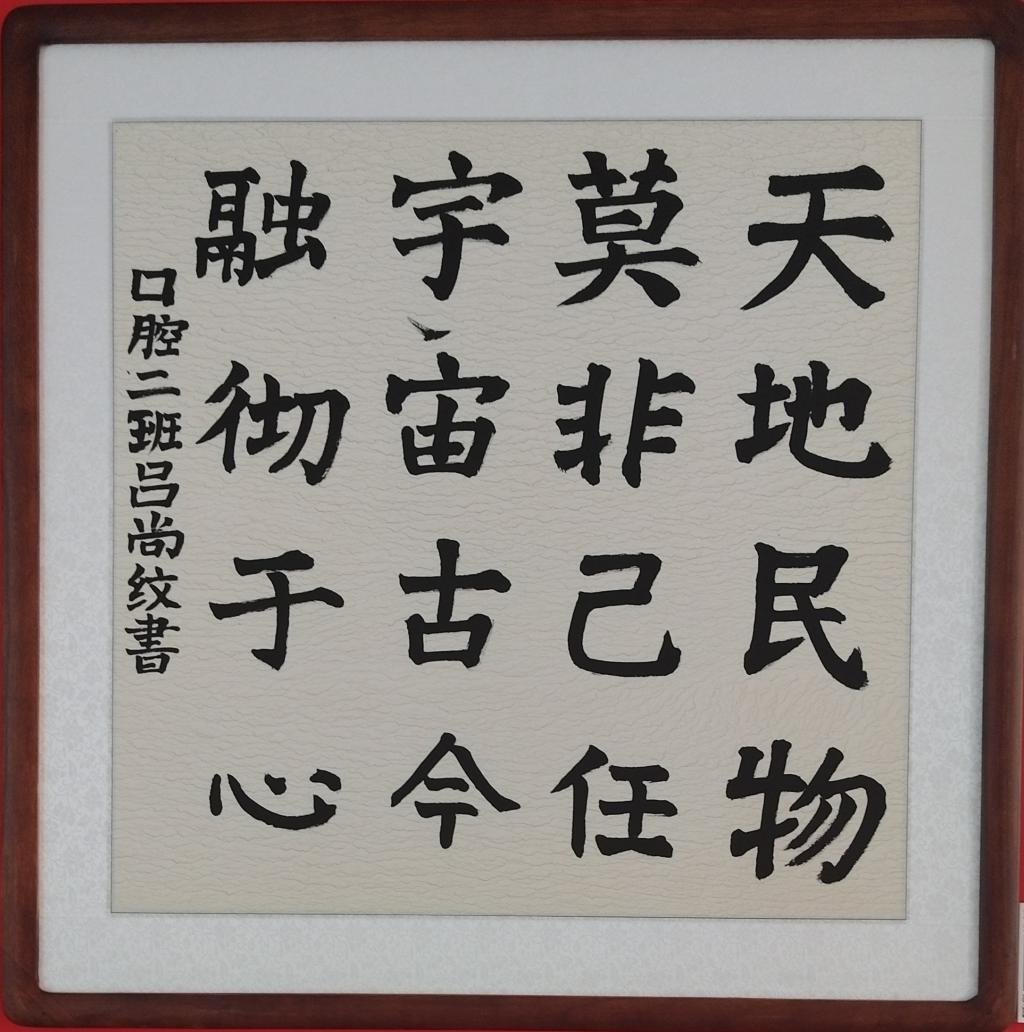 天地民物
莫非己任
宇宙古今
融彻于心
口腔二班吕尚纹書